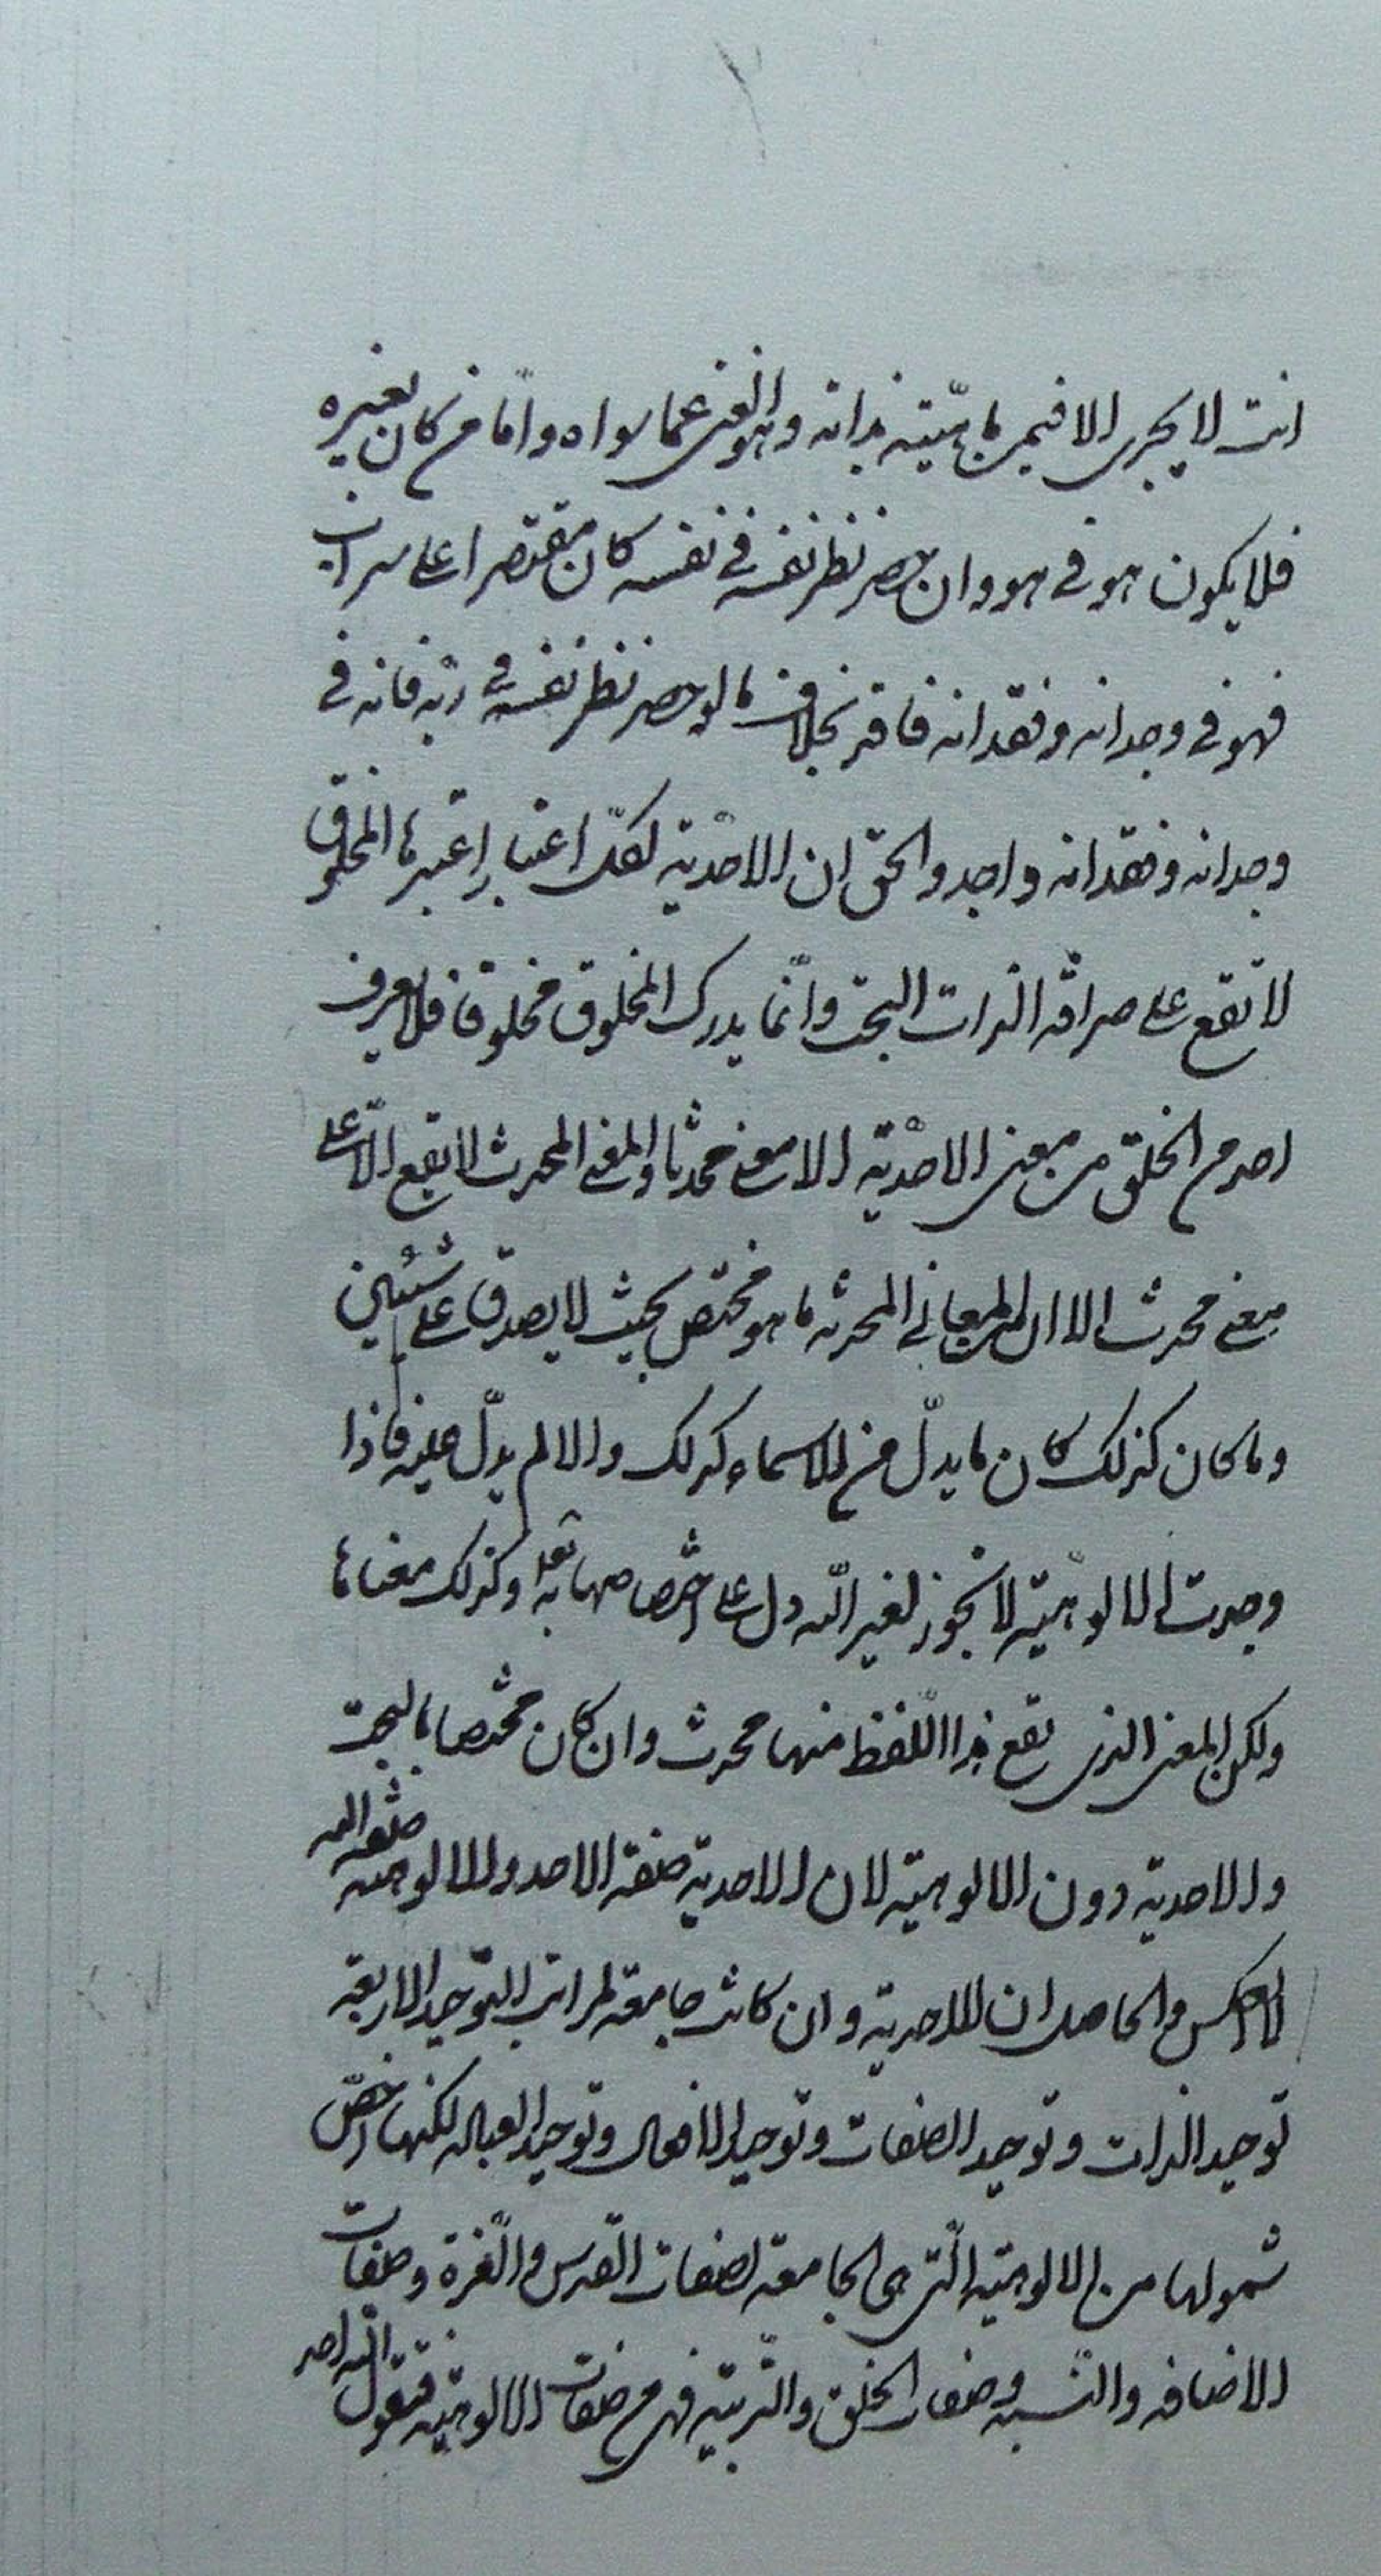 انت لا يجرى الا فيمن ماهيّته بذاته وهو الغنى عما سواه وامّا من كان بغيره
فلا يكون هو فى هو وان حصر نظر نفسه فى نفسه كان مقتصرا على سراب
فهو فى وجدانه وفقدانه فاقد بخلاف ما لو حصر نظر نفسه فى ربّه فانه فى
وجدانه وفقدانه واجد والحق ان الاحديّة لكل اعتبار اعتبرها المخلوق
لا تقع على صرافة الذات البحت وانّما يدرك المخلوق مخلوقا فلا يعرف
احد من الخلق من معنى الاحديّة الا معنى محدثا والمعنى المحدث لا يقع الّا على
معنى محدث الا ان المعانى المحدثه ما هو مختص بحيث لا يصدق على شيئين
وما كان كذلك كان ما يدلّ من الاسماء كذلك والا لم يدلّ عليه فاذا
وجدت الالوهيّة لا تجوز لغير اللّه دل على اختصاصها به تعالى وكذلك معناها
ولكن المعنى الذى يقع هذا اللّفظ منها محدث وان كان مختصا بالبحت
والاحدية دون الالوهيّة لان الاحدية صفة الاحد والالوهيه صفة الله
لا العكس والحاصل ان الاحدية وان كانت جامعة لمراتب التوحيد الاربعة
توحيد الذات وتوحيد الصفات وتوحيد الافعال وتوحيد العبادة لكنها اخصّ
شمولها من الالوهيّة الّتى هى الجامعة لصفات القدس والعّزة وصفات
الاضافه والنّسبه وصفات الخلق والتّربية فهى من صفات الالوهيّة فتقول الله احد